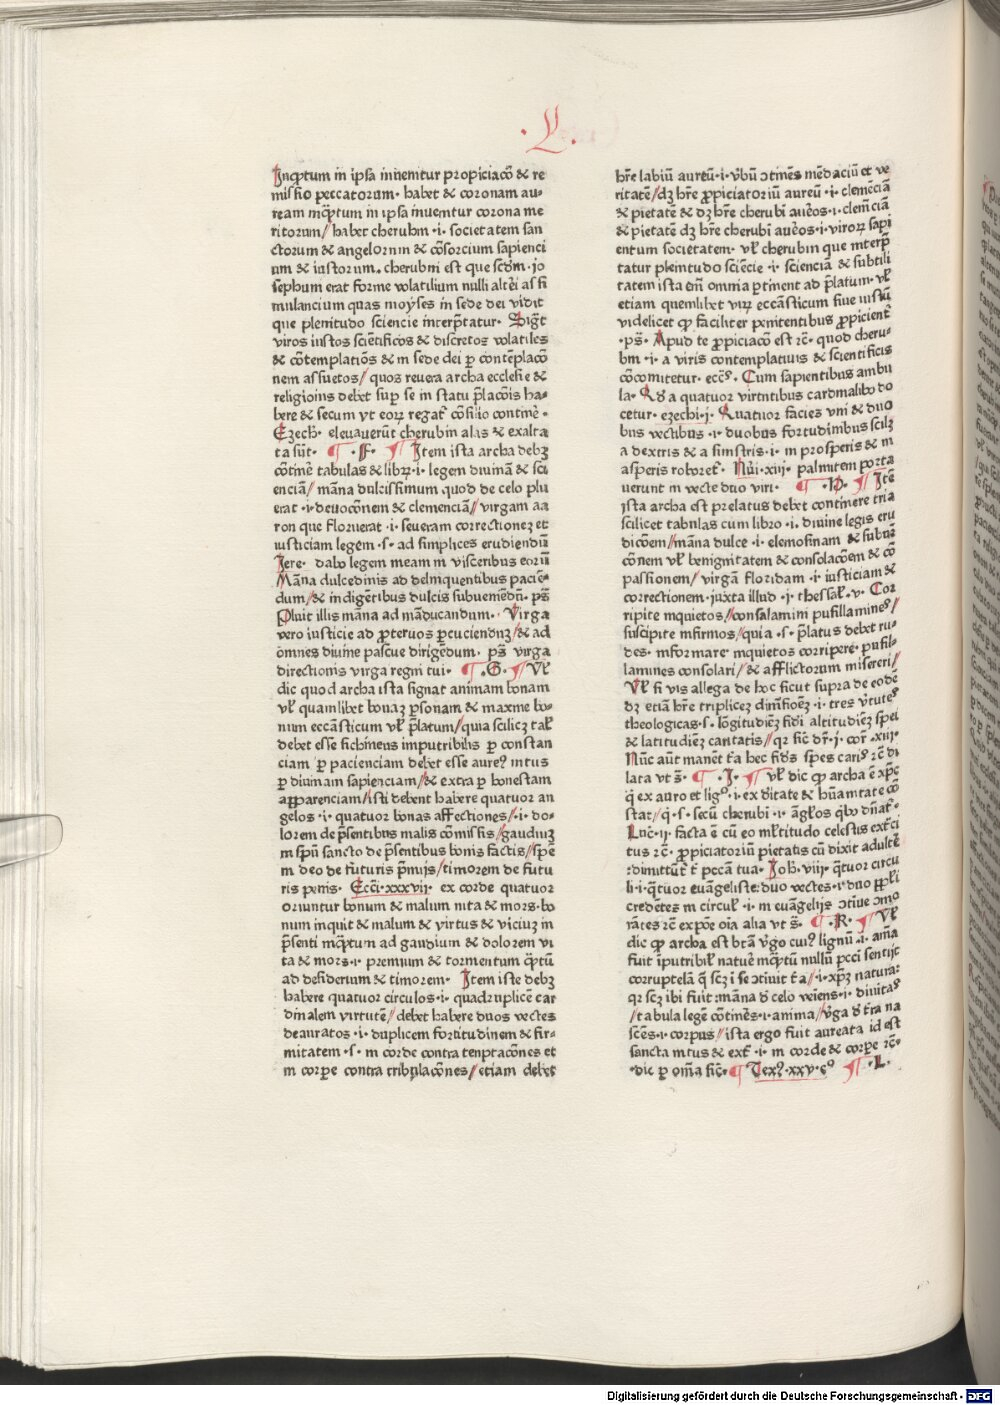 ·L·
Inquantum in ipsa inuenitur propiciacō & re
missio peccatorum· habet & coronam au-
ream inquantum in ipsa inuenitur corona me
ritorum/ habet cherubin ·i· societatem san
ctorum & angelorum & cōsorcium sapienci
um & iustorum. cherubin est que scdm· io
sephum erat forme volatilium nulli alteri assi
milancium quas moyses in sede dei vidit
que plenitudo sciencie interp̄tatur·
viros iustos scientificos & discretos volatiles
& cōtemplatiōs & in sede dei p contēplacō
nem assuetos/ quos reuera archa ecclesie &
religioins debet sup se in statu p̄lacōis ha-
bere & secum vt eoꝝ regat̉ cōsilio continē·
Ezech· eleuauerūt cherubin alas & exalta
ta sūt· ¶ ·F· ¶ Item ista archa debꝫ
cōtinē tabulas & libꝝ ·i· legem diuinā & sci
enciā/ māna dulcissimum quod de celo plu
erat ·i· deuocōnem & clemenciā/ virgam aa
ron que floruerat ·i· seueram correctioneꝫ et
iusticiam legem ·s· ad simplices erudiendū
Jere· dabo legem meam in visceribus eorū
Māna dulcedinis ad delinquentibus pacien-
dum/& indigētibus dulcis subueniēdū· ps̄
Pluit illis māna ad māducandum· Virga
vero iusticie ad p̱teruos percuciendꝫ/& ad
omnes diuine pascue dirigēdum· ps̄ virga
directionis virga regni tui· ¶ ·G· ¶ Vl̄
dic quod archa ista signat animam bonam
vl̄ quamlibet bonaꝫ p̱sonam & maxme bo-
num eccāsticum vl̄ p̄latum/quia sciliꝫ tal̄
debet esse sichineus imputribilis p constan
ciam p pacienciam debet esse aureꝰ intus
p diuinam sapienciam/& extra p honestam
apparenciam/isti debent habere quatuor an
gelos ·i· quatuor bonas affectiones/·i· do-
lorem de p̄sentibus malis cōmissis/gaudiuꝫ
in spū sancto de p̄sentibus bonis factis/spē
in deo de futuris p̄mijs/timorem de futu
ris penis· Ecci·xxxvij· ex corde quatuor
oriuntur bonum & malum uita & mors· bo
num inquit & malum & virtus & viciuꝫ in
p̄senti inquantum ad gaudium & dolorem vi
ta & mors ·i· premium & tormentum quātū
ad desiderium & timorem· Item iste debꝫ
habere quatuor circulos ·i· quadruplicē car
dinalem virtutē/ debet habere duos vectes
deauratos ·i· duplicem fortitudinem & fir-
mitatem ·s· in corde contra temptacōnes et
in corpe contra tribulacōnes/etiam debet
hr̄e labiū aureū·i·vbū ↄtinēs mēdaciū et ve
ritatē/dꝫ hr̄e p̱piciatoriū aureū ·i· clemēciā
& pietatē & dꝫ hr̄e cherubī aureos·i·clemēciā
& pietatē dꝫ hr̄e cherubī aureos·i·viroꝝ sapi
entum societatem· vl̄ cherubin que interp̄
tatur plenitudo sciēcie ·i· scienciā & subtili
tatem ista em̄ omnia pertinent ad p̄latum· vl̄
etiam quemlibet viꝝ eccāsticum siue iustū
videlicet qp faciliter penitentibus p̱picient̄
·ps̄· Apud te p̱piciacō est rē· quod cheru-
bin ·i· a viris contemplatiuis & scientificis
cōcomitetur· eccs̄· Cum sapientibus ambu
la· a quatuor virtutibus cardinalibo do
cetur· ezechi·j· Quatuor facies vni & duo
bus vectibus ·i· duobus fortitudinibus scilꝫ
a dextris & a sinistris ·i· in prosperis & in
asperis roboret̄· Nūi·xiij· palmitem porta
uerunt in vecte duo viri· ¶ ·H· ¶ Itē
ista archa est prelatus debet continere tria
scilicet tabulas cum libro ·i· diuine legis eru
dicōem/māna dulce ·i· elemosinam & subuē
cōnem vl̄ benignitatem & consolacōem & cō
passionem/ virgā floridam ·i· iusticiam &
correctionem·juxta illud ·j· thessal̄·v· Cor
ripite inquietos/consolamini pusillamines/
suscipite infirmos/quia ·s· p̄latus debet ru-
des· informare· inquietos corripere· pusil-
lamines consolari/& afflictorum misereri/
Vl̄ si vis allega de hoc sicut supra de eodē
dꝫ etiā hr̄e tripliceꝫ dimēsioēꝫ ·i· tres v̄tutes
theologicas·s· lōgitudieꝫ fidi altitudieꝫ spei
& latitudieꝫ caritatis/qr sic dr̄·j· cor̄·xiij·
Nūc aūt manēt tria hec fides spes cariꝰ rē di
lata vt s̄· ¶ ·J· ¶ Vl̄ dic qp archa ē xp̄ꝰ
q̄ ex auro et ligo·i·ex ditate & hūanitate cō
stat/q̄·s· secū cherubī ·i· āgl̄os qbo dnāt̄·
Luc·ij· facta ē cū eo ml̄titudo celestis exrc̄i
tus rē· p̱piciatoriū pietatis cū dixit adultē
:dimittūt̄ t̄ pccā tua· Joh·viij· qtuor circu
li·i·qtuor euāgeliste:duo vectes·i·duo ppl̄i
credētes in circul̄·i·in euāgelijs ↄtiue ↄmo
rātes rē expōe oīa alia vt s̄· ¶ ·K· ¶ Vl̄
dic qp archa est btā vgo cuiꝰ lignū·i·aīa
fuit īputribil̄ natue inqtū nullū pccī sentijt
corruptelā q̄ scꝫ i se ↄtinuit tria/·i·xp̄ꝫ natura:
qr scꝫ ibi fuit:māna d celo veiens·i·diuitas
/tabula legē cōtinēs·i·anima/vga d t̄ra na
scēs·i·corpus/ista ergo fuit aureata id est
sancta intus & ext̄ ·i· in corde & corpe rē·
·dic p omīa sic·¶ Texꝰ·xxv·cº ¶ ·L·
Digitalisierung gefördert durch die Deutsche Forschungsgemeinschaft - DFG